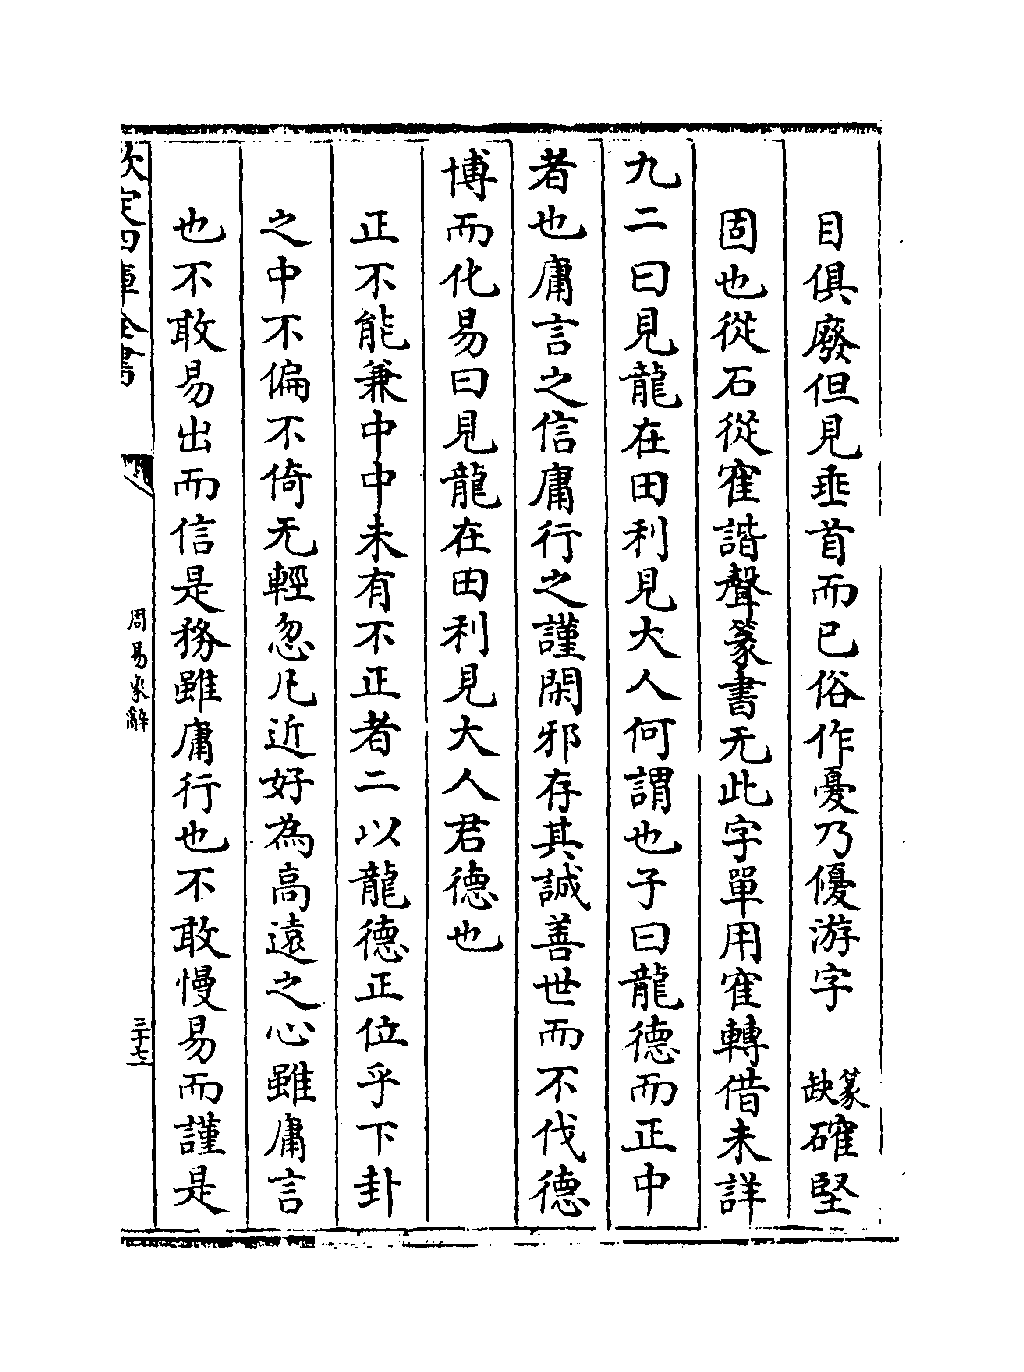 目俱廢但見垂首而已俗作憂乃優游字　篆缺確堅
固也從石從隺諧聲篆書无此字單用隺轉借未詳
九二曰見龍在田利見大人何謂也子曰龍德而正中
者也庸言之信庸行之謹閑邪存其誠善世而不伐德
博而化易曰見龍在田利見大人君德也
正不能兼中中未有不正者二以龍德正位乎下卦
之中不偏不倚无輕忽凡近好為高遠之心雖庸言
也不敢易出而信是務雖庸行也不敢慢易而謹是
欽定四庫全書
周易象辭
三十七